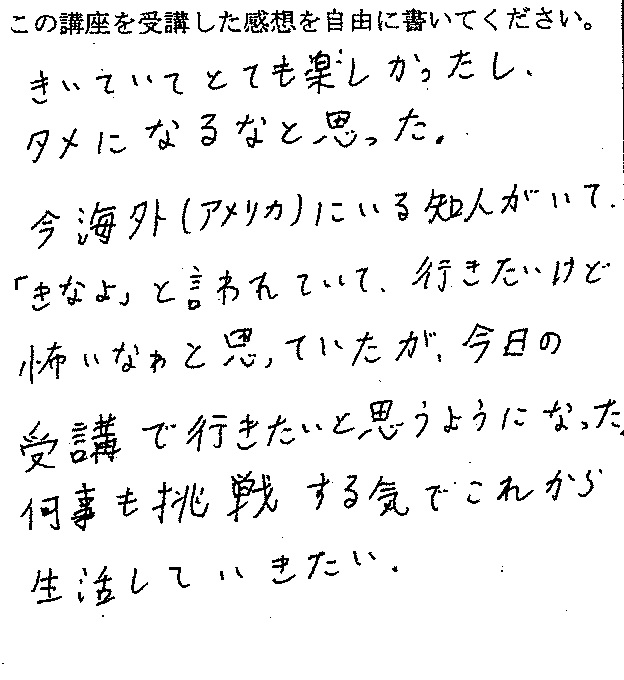 この講座を受講した感想を自由に書いてください。
きいていてとても楽しかったし、
タメになるなと思った。
今海外(アメリカ)にいる知人がいて、
「きなよ」と言われていて、行きたいけど
怖いなぁと思っていたが、今日の
受講で行きたいと思うようになった。
何事も挑戦する気でこれから
生活していきたい。